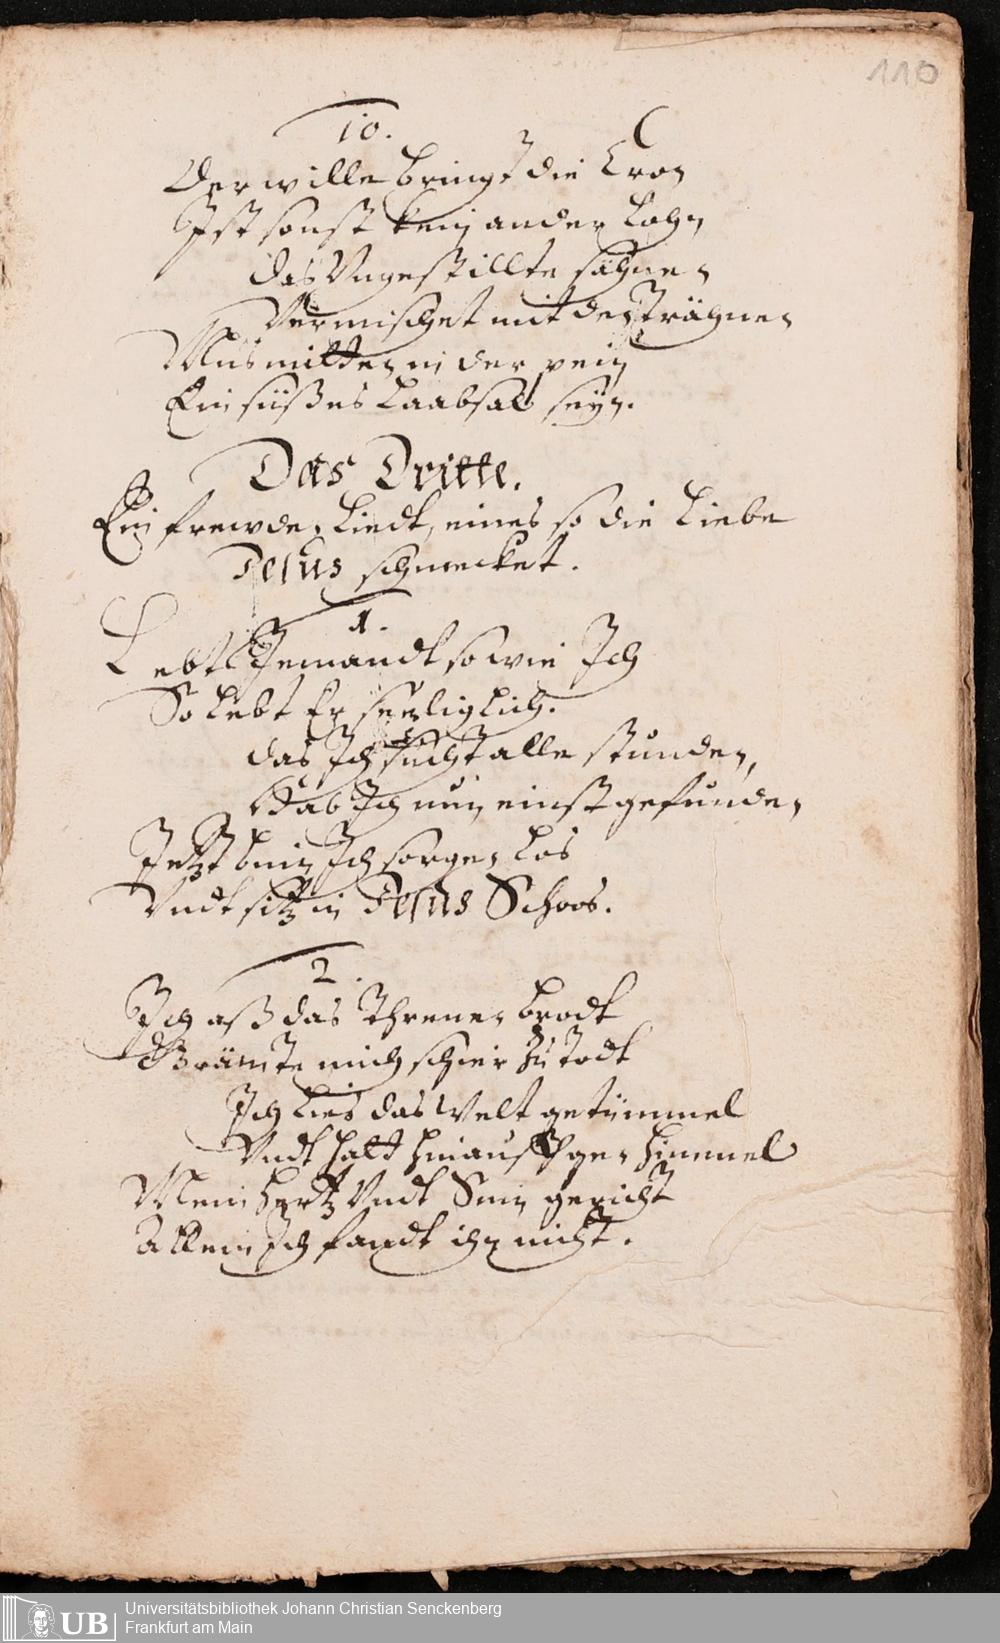 110
10.
Der wille bringt die Cron
Ist sonst kein ander Lohn
das Vngestillte sähnen
Vermischet mit den Trähnen
Mus mitten in der pein
Ein süßes Laabsal seyn.
Das Dritte.
Ein frewden Liedt, eines so die Liebe
Jesus schmecket.
1.
Lebt Jemandt so wie Ich
So Lebt Er seeliglich.
das Ich sucht alle stunden,
Hab Ich nun einst gefunden
Jetzt bin Ich sorgen Los
Vndt sitz in Jesus Schoos.
2.
Ich aß das Threnen brodt
Grämte mich schier zu todt
Ich Lies das Welt getümmel
Vndt hatt hinauf gen Himmel
Mein Hertz Vndt Sinn gericht
Allein Ich fandt ihn nicht.
UB
Universitätsbibliothek Johann Christian Senckenberg
Frankfurt am Main